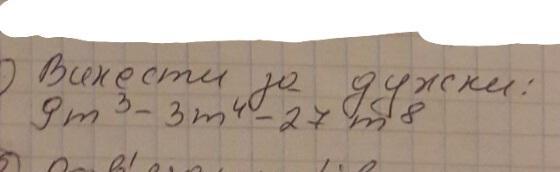 ) Винести за дужки:
9m³ - 3m⁴ - 27 m⁸